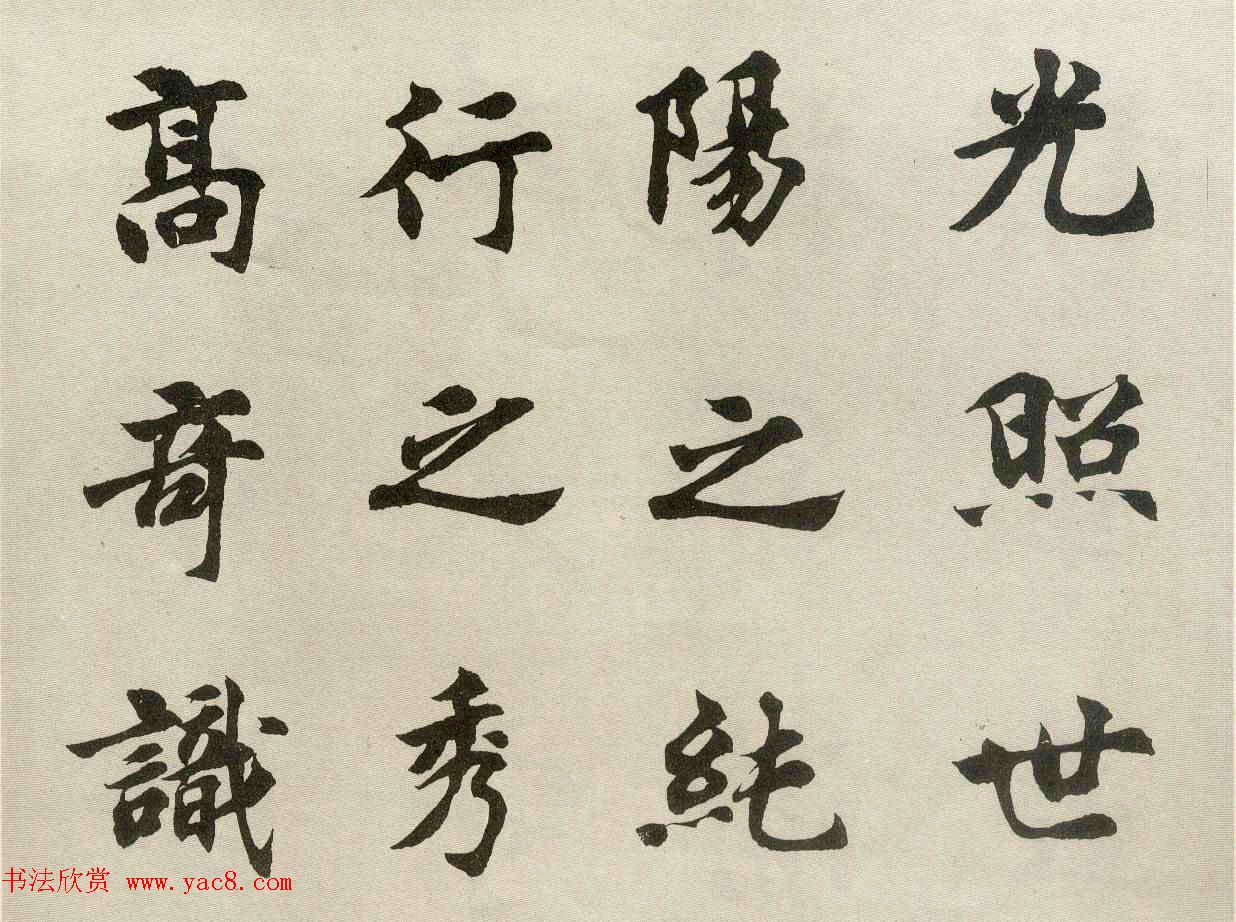 光照世
陽之純
行之秀
高奇識
书法欣赏 www.yac8.com